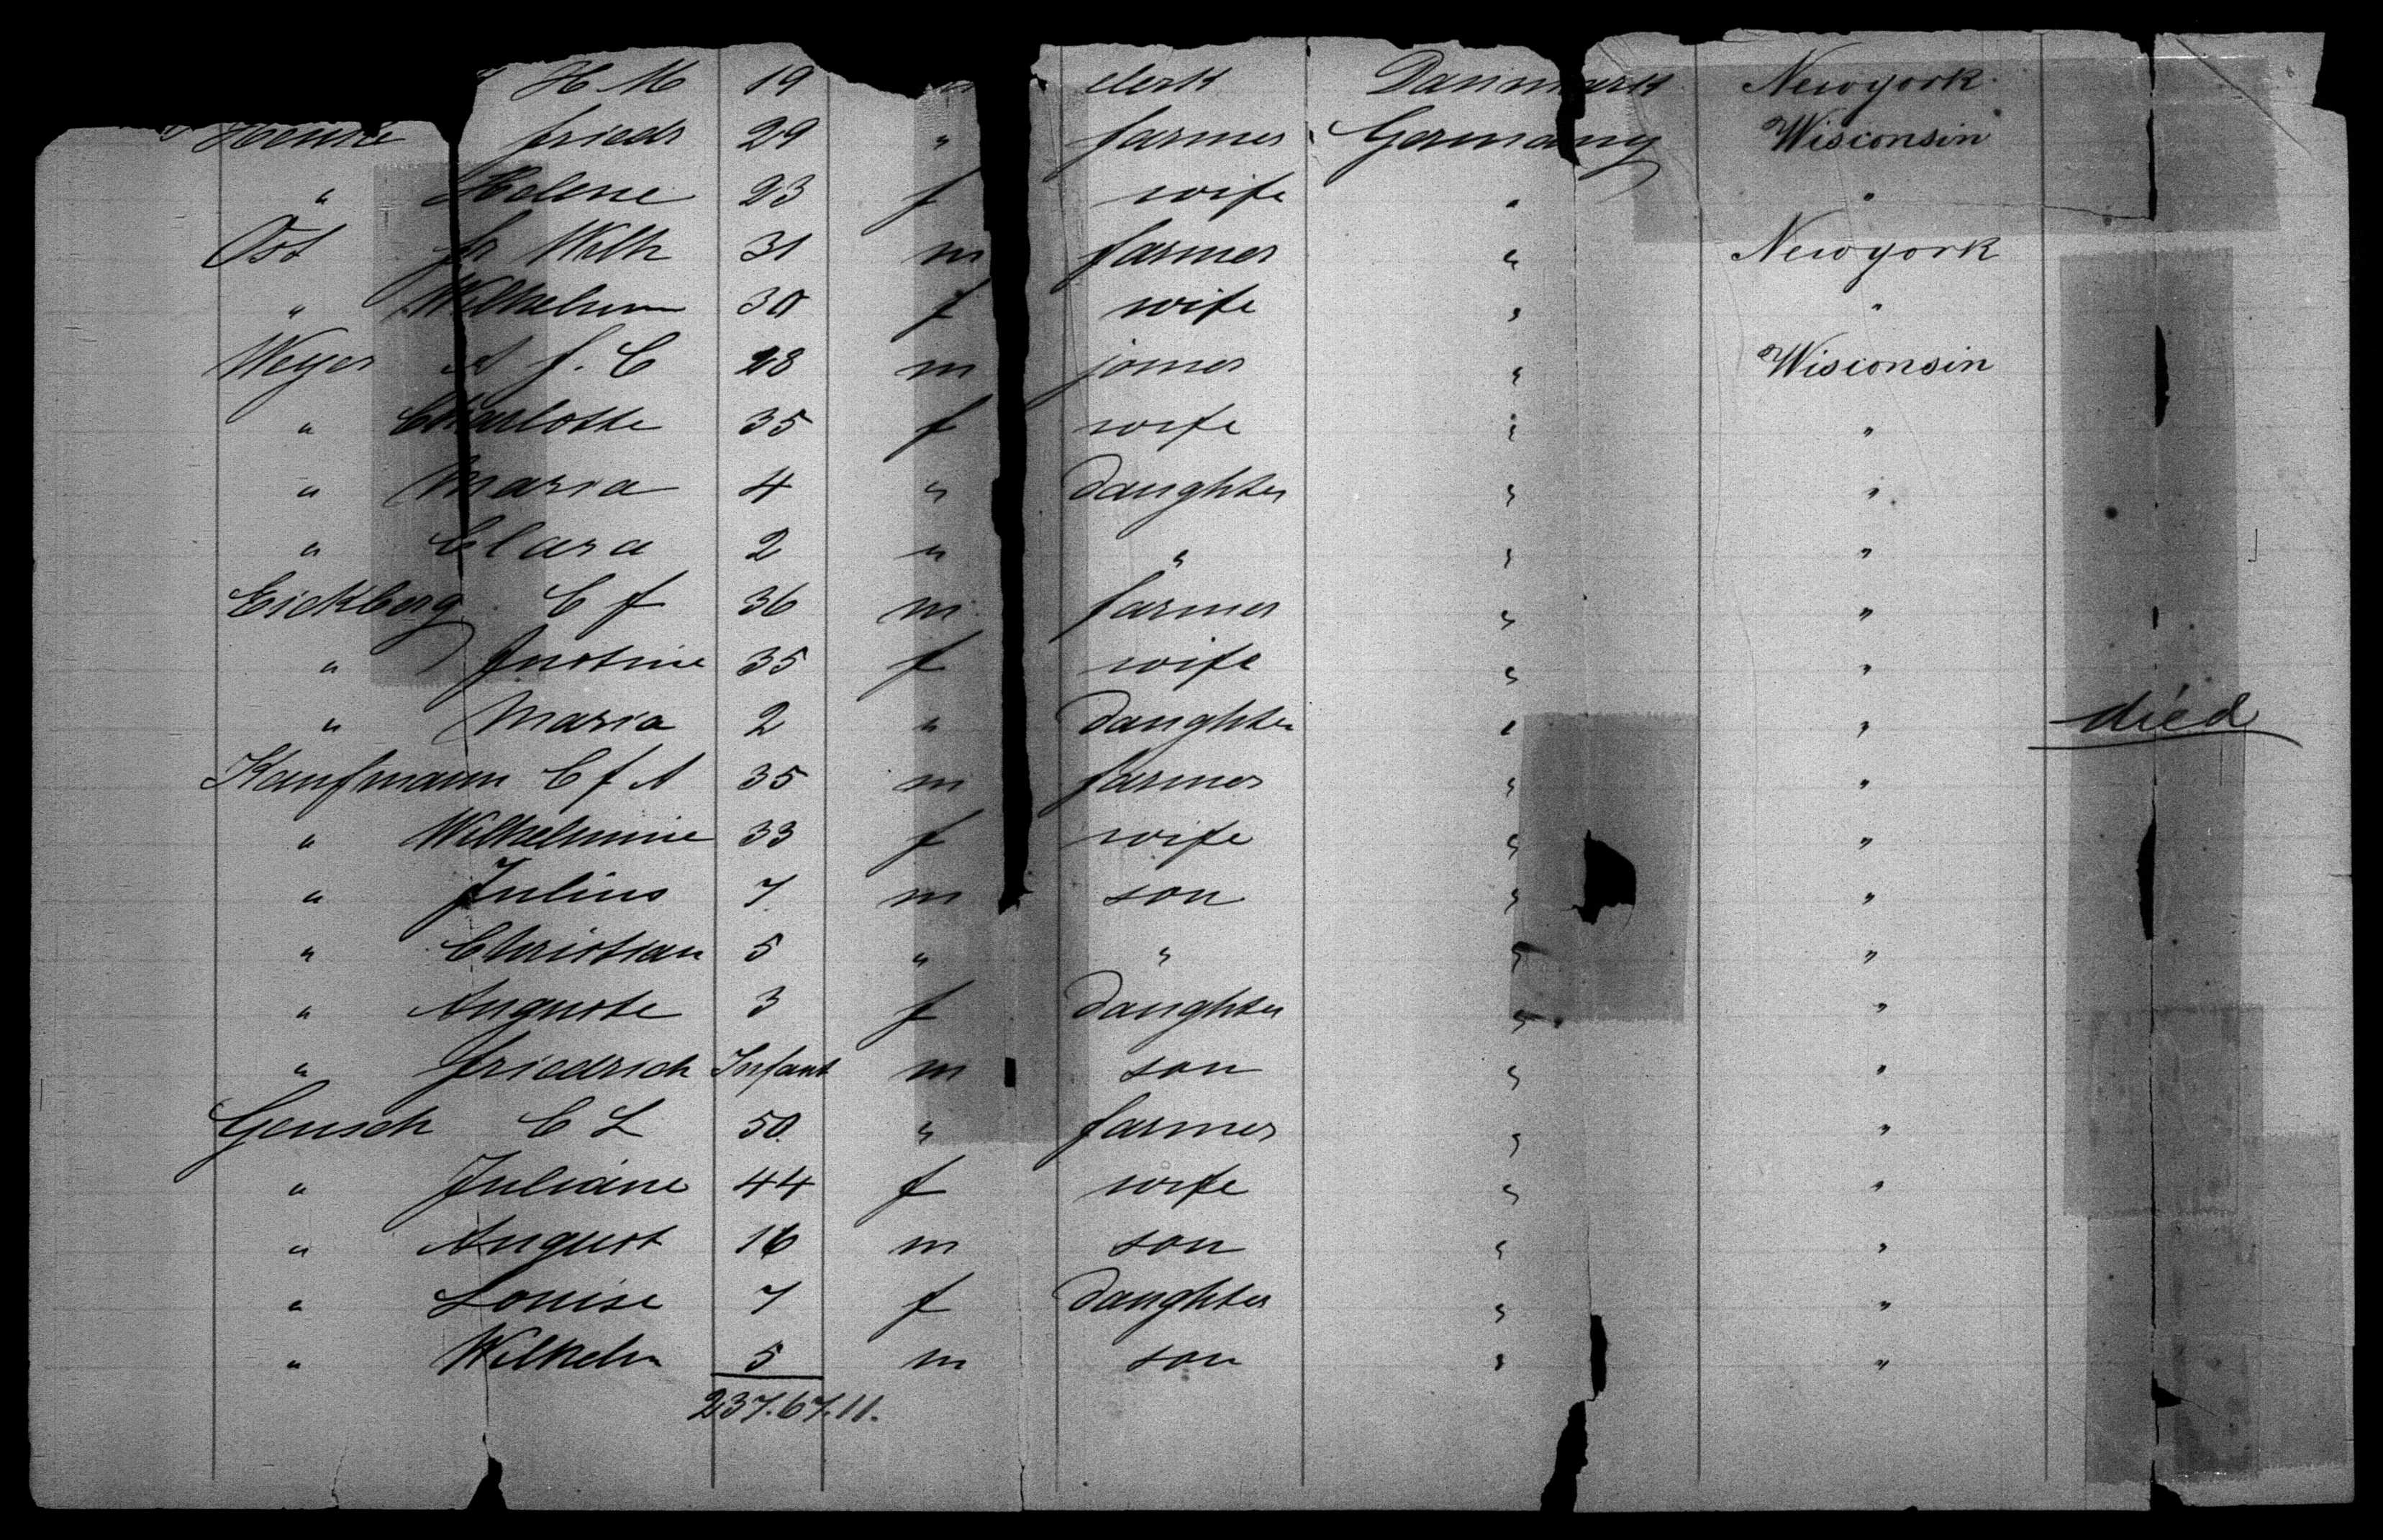 H M 19 clerk Danmark Newyork
friedr 29 " farmer Germany Wisconsin
" Helene 23 f wife " "
Ost fr Wilh 31 m farmer " Newyork
" Wilhelm 30 f wife " "
Weyer A f. C 28 m joiner " Wisconsin
" Charlotte 35 f wife " "
" Maria 4 " daughter " "
" Clara 2 " " " "
Eickberg C f 36 m farmer " "
" Justine 35 f wife " "
" Maria 2 " daughter " " died
Kaufmann C f A 35 m farmer " "
" Wilhelmine 33 f wife " "
" Julius 7 m son " "
" Christian 5 " " " "
" Auguste 3 f daughter " "
" friedrich Infant m son " "
Gensch C L 50 " farmer " "
" Juliane 44 f wife " "
" August 16 m son " "
" Louise 7 f daughter " "
" Wilhelm 5 m son " "
237.67.11.